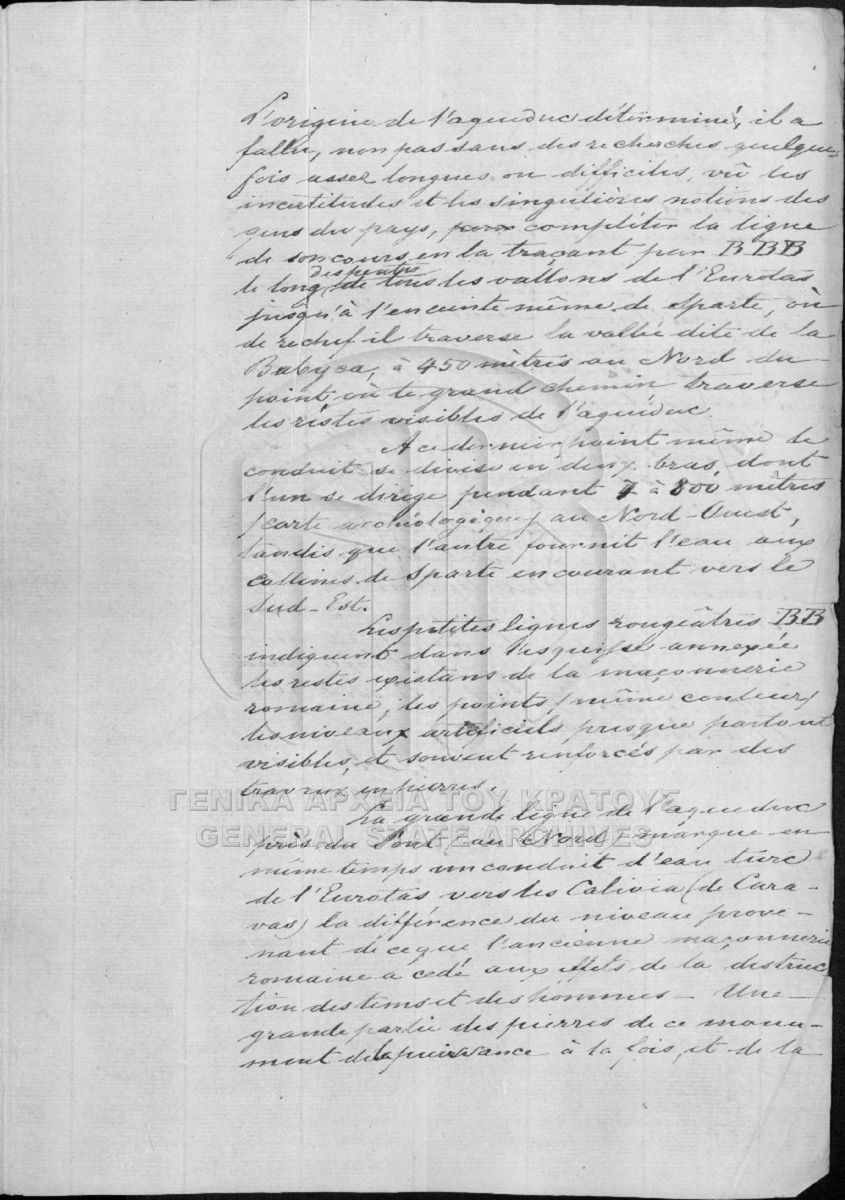 L'origine de l'aqueduc déterminé, il a
fallu, non pas sans des recherches quelque-
fois assez longues ou difficiles, vû les
incertitudes et les singulières notions des
gens du pays, pour compléter la ligne
de son cours en la traçant par BBB
des pentes
le long de tous les vallons de l'Eurotas
jusqu'à l'enceinte même de Sparte, où
de rechef il traverse la vallée dite de la
Babyca, à 450 mètres au Nord du
point où le grand chemin traverse
les réstes visibles de l'aquéduc.
A ce dernier point même le
conduit se divise en deux bras, dont
l'un se dirige pendant 7 à 800 mètres
(carte archéologique) au Nord-Ouest,
tandis que l'autre fournit l'eau aux
collines de Sparte en courant vers le
Sud-Est.
Les petites lignes rougeâtres BB
indiquent dans l'esquisse annexée
les restes existans de la maçonnerie
romaine, les points (même couleur)
les niveaux artificiels presque partout
visibles, et souvent renforcés par des
travaux en pierres.
ΓΕΝΙΚΑ ΑΡΧΕΙΑ ΤΟΥ ΚΡΑΤΟΥΣ
GENERAL STATE ARCHIVES
La grande ligne de l'aqueduc
près du Pont (au Nord) marque en
même temps un conduit d'eau turc
de l'Eurotas vers les Calivia (de Cara-
vas) la différence du niveau prove-
nant de ce que l'ancienne maçonnerie
romaine a cédé aux effets de la destruc-
tion des tems et des hommes - Une
grande partie des pierres de ce monu-
ment de la puissance à la fois, et de la